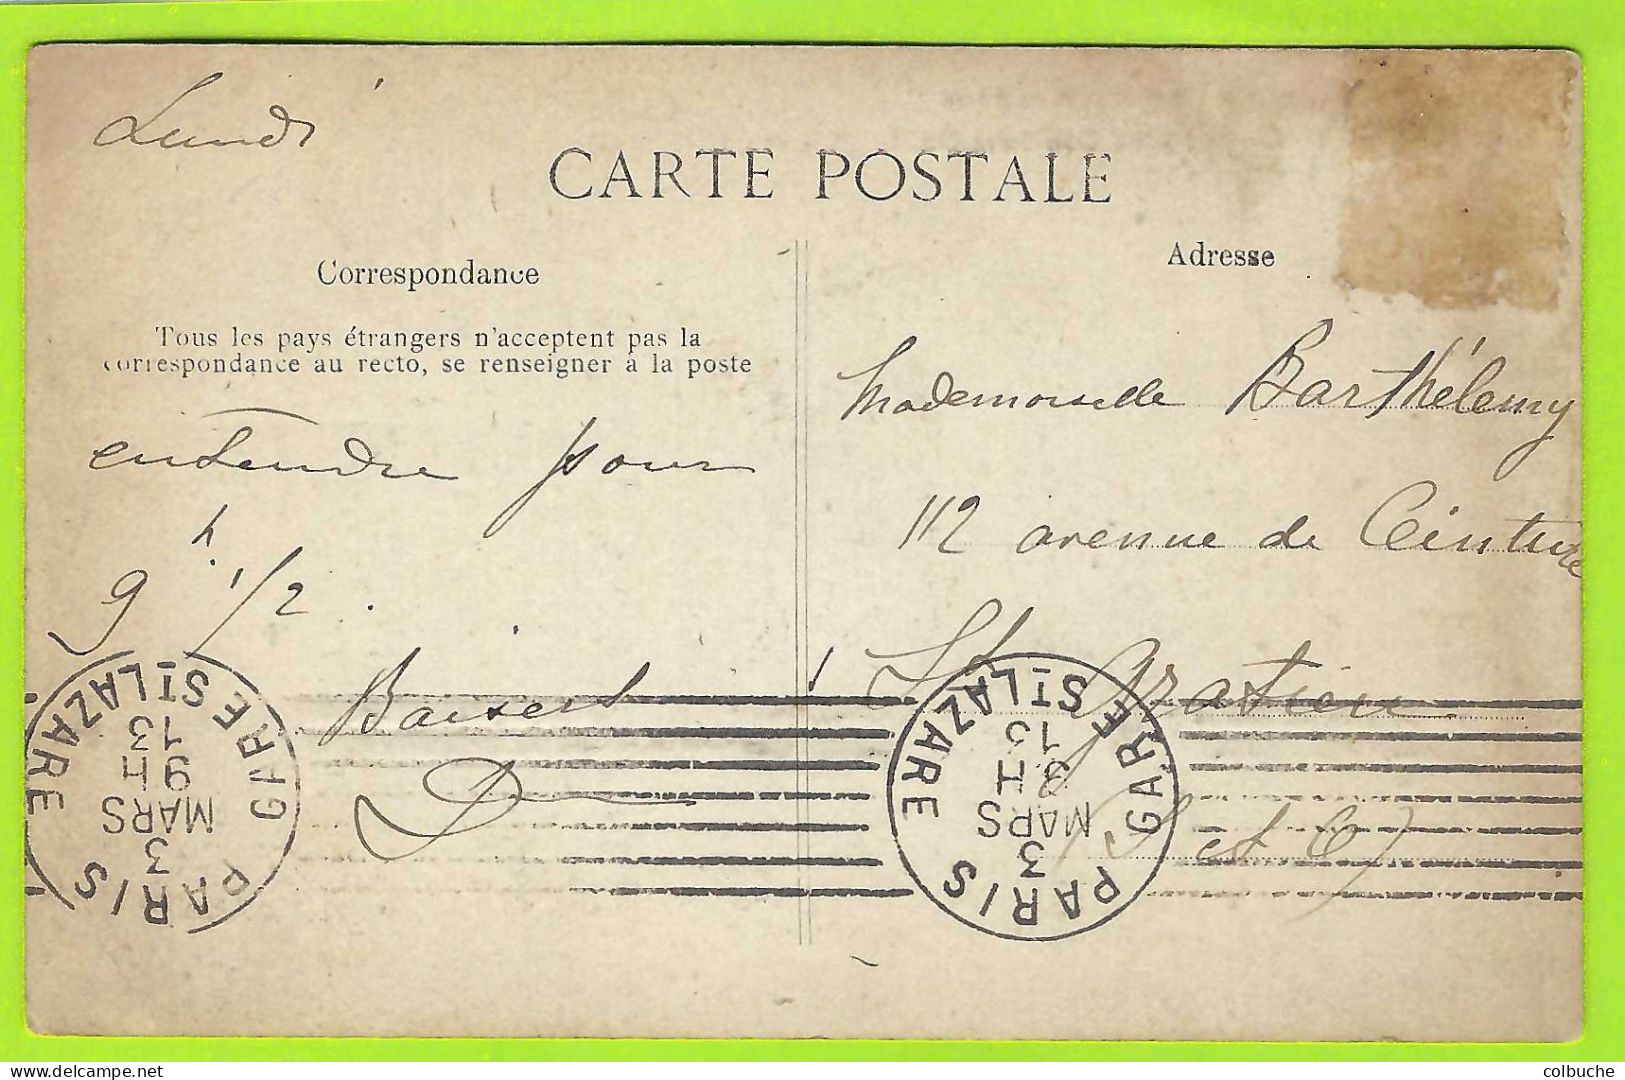 Lundi
CARTE POSTALE
Correspondance
Tous les pays étrangers n'acceptent pas la
correspondance au recto, se renseigner à la poste
entendre pour
9 h 1/2.
Baisers
Adresse
Mademoiselle Barthélemy
112 avenue de Ceinture
St Gratien
(S et O)
PARIS GARE ST LAZARE
3
MARS
9H
13
PARIS GARE ST LAZARE
3
MARS
13
colbuche